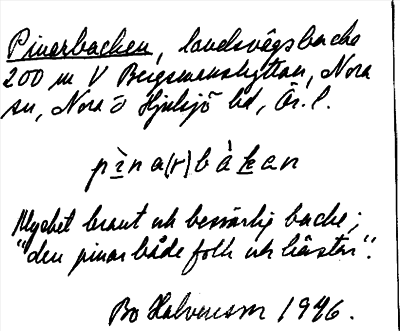 Pinarbacken, landsvägsbacke
200 m V Bergsmanshyttan, Nora
sn, Nora o Hjulsjö bd, Ör. l.
pìna(r)bàkan
Mycket brant och besvärlig backe;
"den pinar både folk och hästar".
Bo Halvarsson 1946.